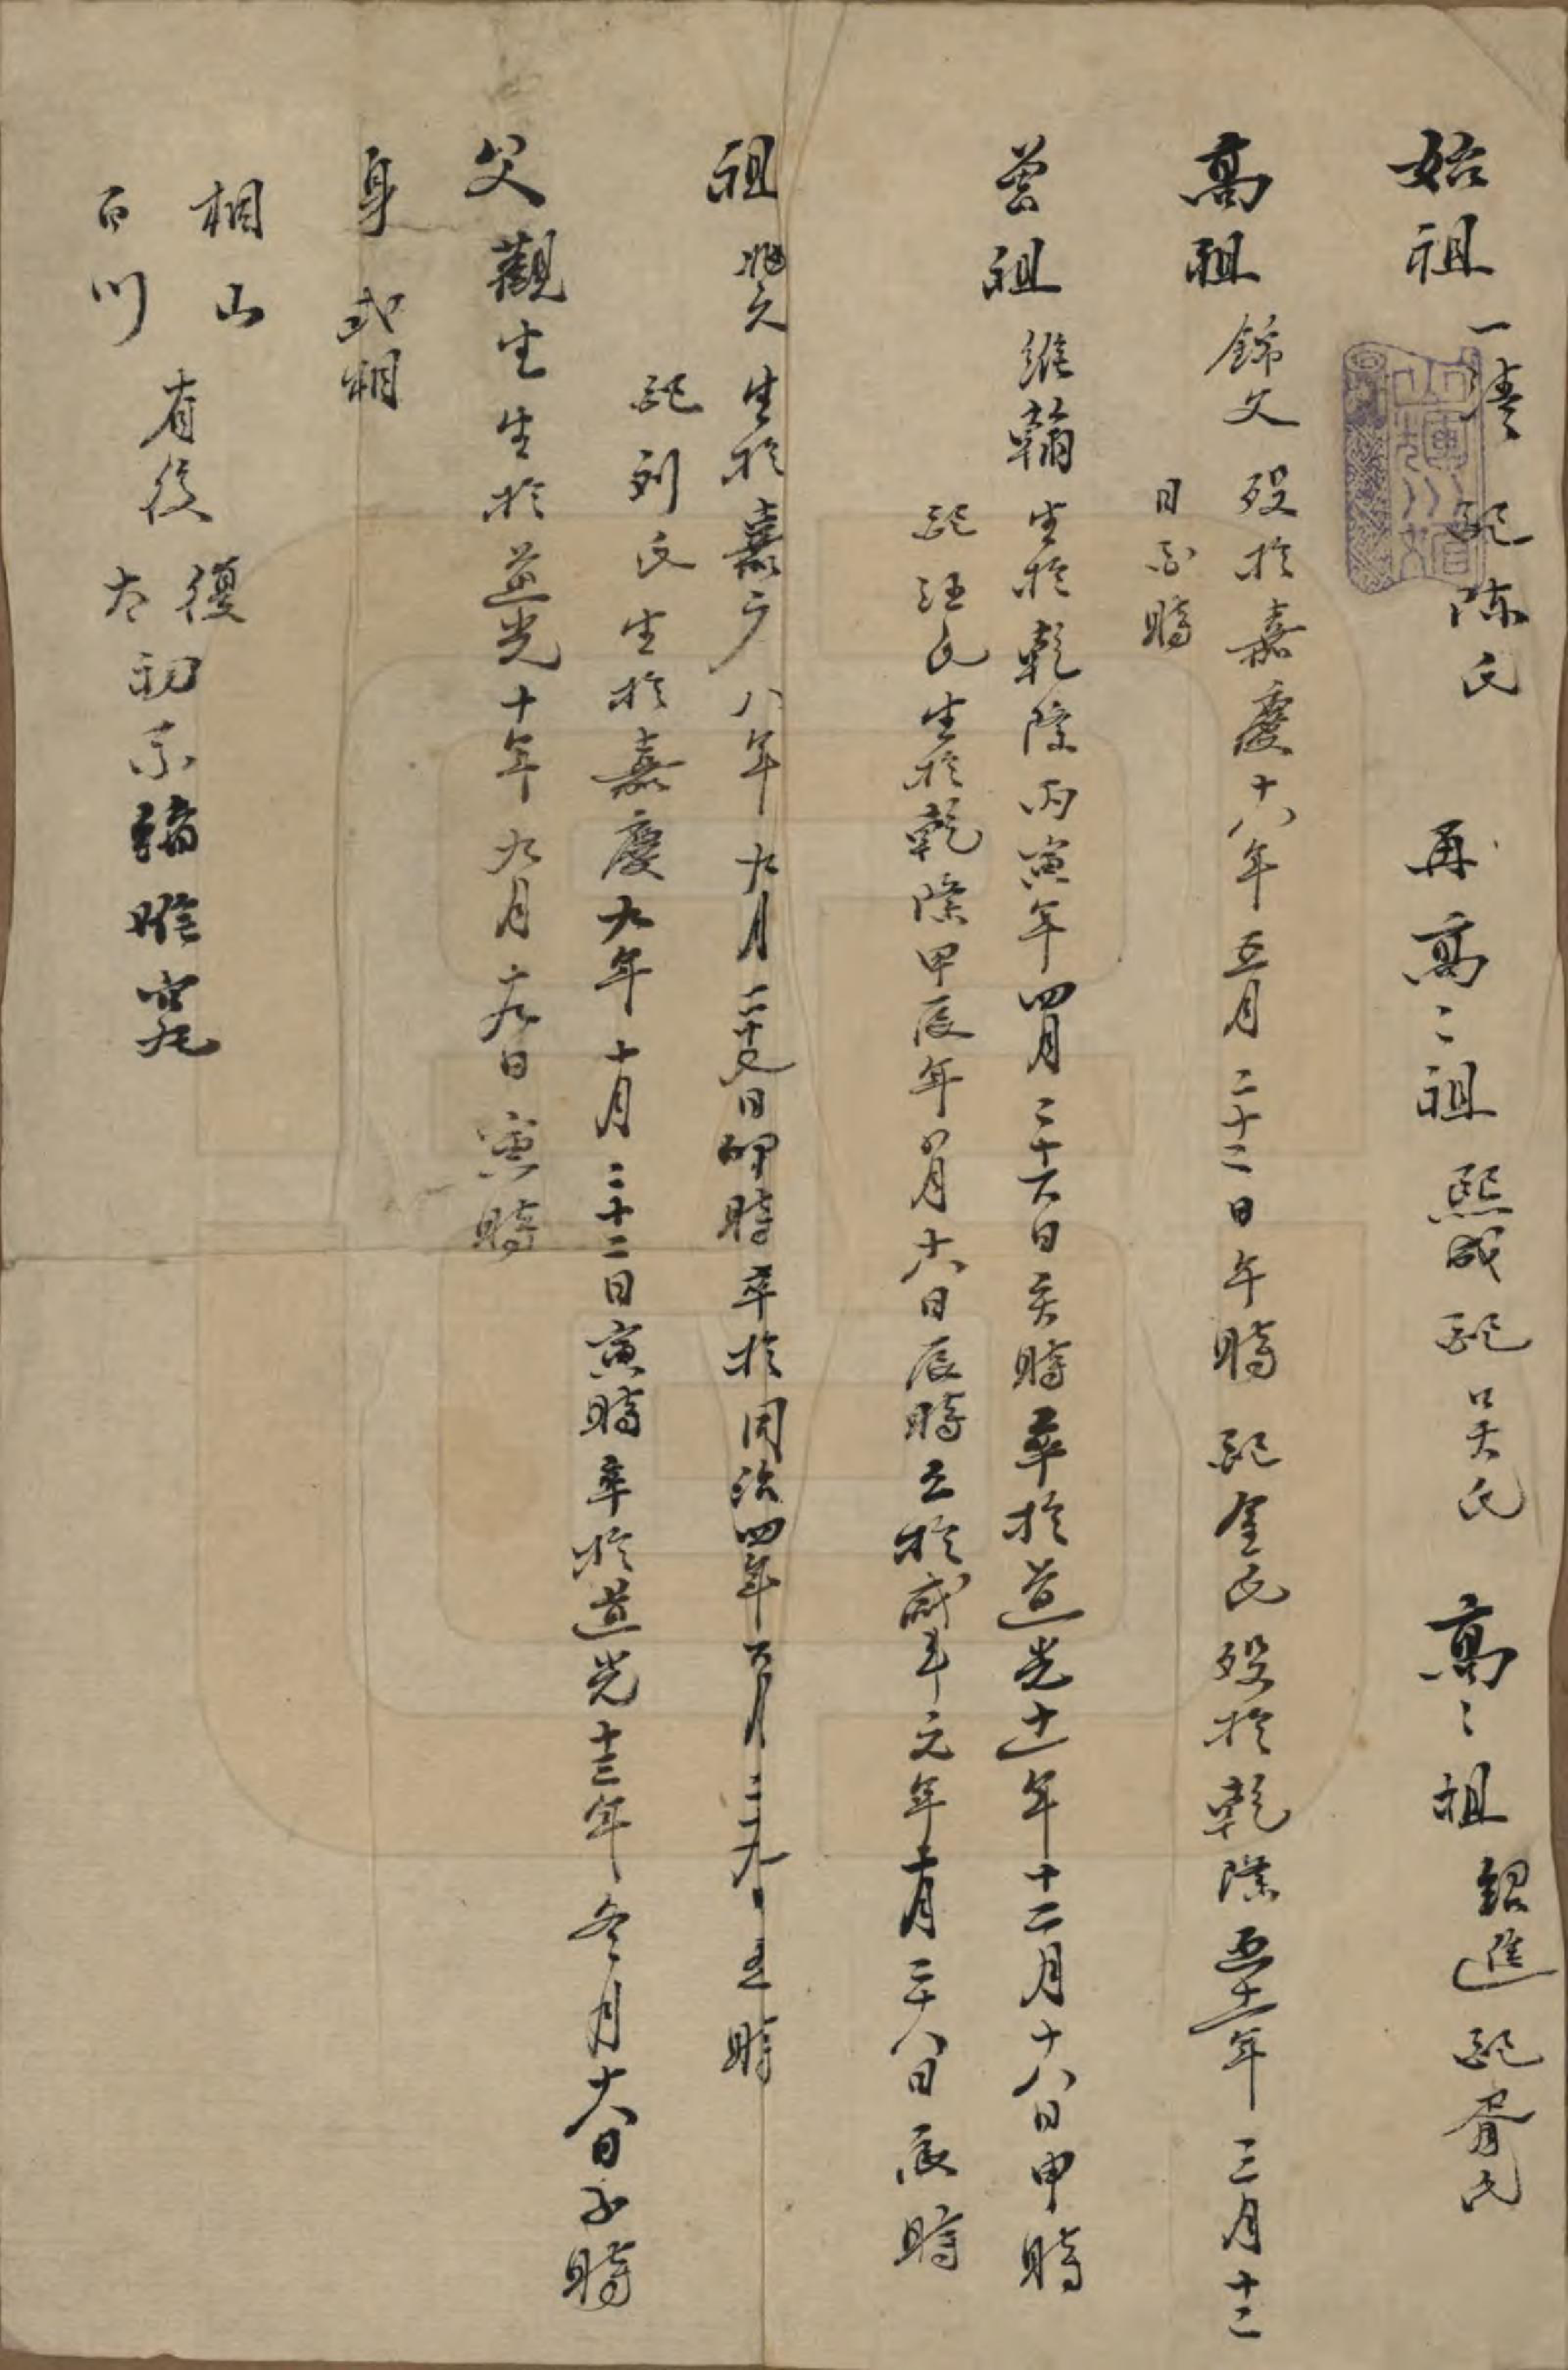 始祖一清配陈氏 再高二祖熙成配吴氏 高二祖紹進配胥氏
高祖錦文殁於嘉慶十八年五月二十二日午時配金氏殁於乾隆五十一年三月十二
日子時
曾祖維翰生於乾隆丙寅年四月二十六日亥時卒於道光十一年十二月十八日申時
配汪氏生於乾隆甲辰年八月十六日辰時亡於咸丰元年十月二十八日辰時
祖兆文生於嘉庆八年九月二十日卯時卒於同治四年六月二十九日丑時
配刘氏生於嘉慶九年十月二十二日寅時卒於道光十三年冬月十六日子時
父觀生生於道光十年九月十九日寅時
身式相
相山
百川
有後
復
太初